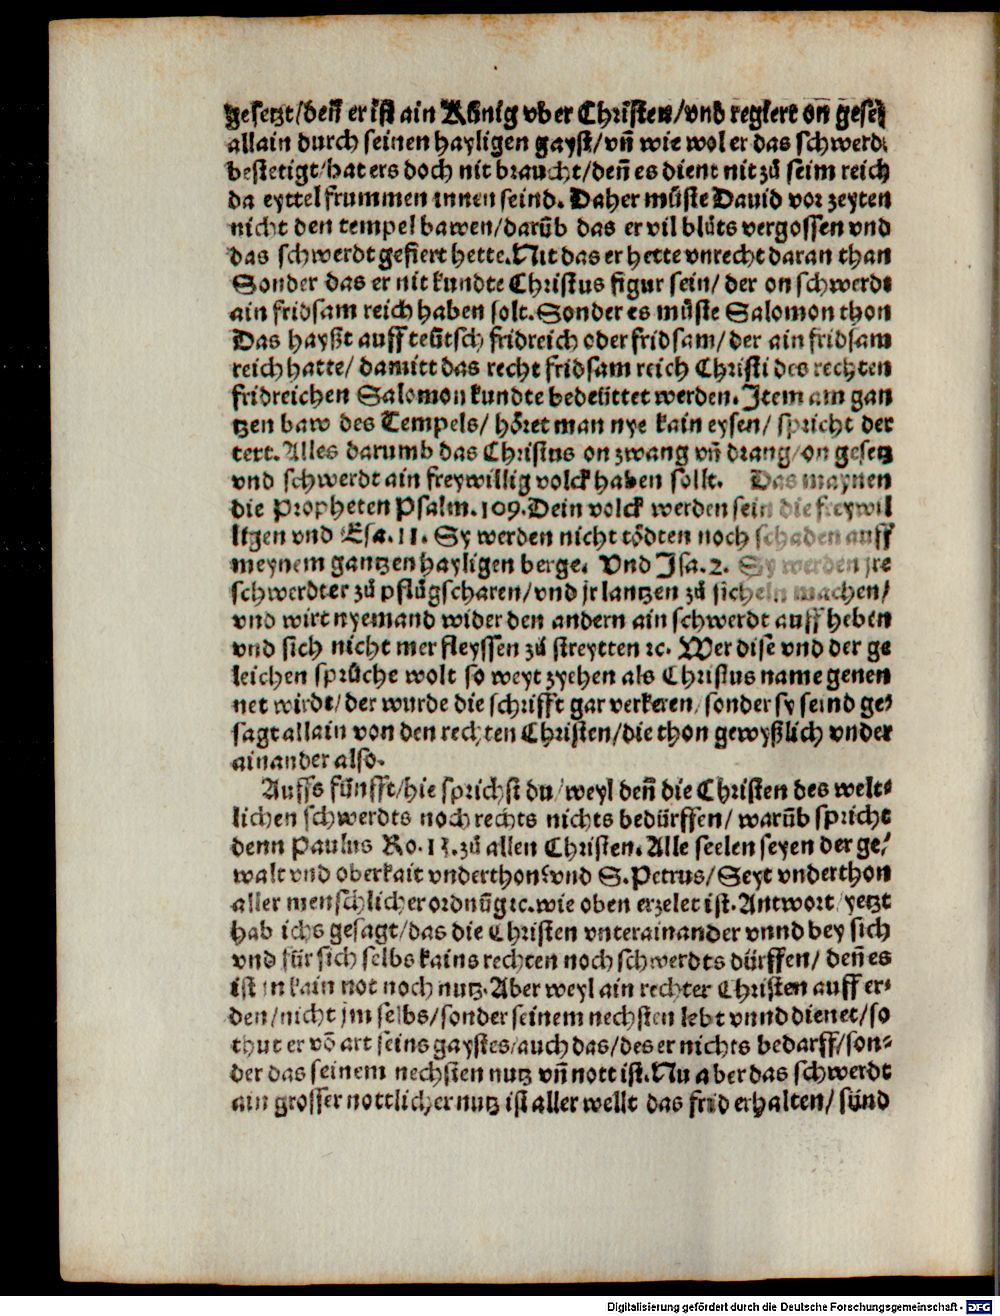 gesetzt/deñ er ist ain König vber Christen/vnd regiert on gesetz
allain durch seinen hayligen gayst/vñ wie wol er das schwerdt
bestetigt/hat ers doch nit braucht/deñ es dient nit zů seim reich
da eyttel frummen innen seind. Daher můste Dauid vor zeyten
nicht den tempel bawen/darüb das er vil blůts vergossen vnd
das schwerdt gefiert hette. Nit das er hette vnrecht daran than
Sonder das er nit kundte Christus figur sein/ der on schwerdt
ain fridsam reich haben solt. Sonder es můste Salomon thon
Das hayßt auff teütsch fridreich oder fridsam/ der ain fridsam
reich hatte/ damitt das recht fridsam reich Christi des rechten
fridreichen Salomon kundte bedeüttet werden. Item am gan
tzen baw des Tempels/ höret man nye kain eysen/ spricht der
text. Alles darumb das Christus on zwang vñ drang/on gesetz
vnd schwerdt ain freywillig volck haben sollt. Das maynen
die Propheten Psalm. 109. Dein volck werden sein die freywil
ligen vnd Esa. 11. Sy werden nicht tödten noch schaden auff
meynem gantzen hayligen berge. Vnd Isa. 2. Sy werden jre
schwerdter zů pflůgscharen/vnd jr lantzen zů sicheln machen/
vnd wirt nyemand wider den andern ain schwerdt auff heben
vnd sich nicht mer fleyssen zů streytten ꝛc. Wer dise vnd der ge
leichen sprüche wolt so weyt zyehen als Christus name genen
net wirdt/der wurde die schrifft gar verkeren/sonder sy seind ge⸗
sagt allain von den rechten Christen/die thon gewyßlich vnder
ainander also.
Auffs fünfft/hie sprichst du/weyl deñ die Christen des welt⸗
lichen schwerdts noch rechts nichts bedürffen/ warüb spricht
denn Paulus Ro. 13. zů allen Christen. Alle seelen seyen der ge⸗
walt vnd oberkait vnderthon? vnd S. Petrus/ Seyt vnderthon
aller menschlicher ordnüg ꝛc. wie oben erzelet ist. Antwort/yetzt
hab ichs gesagt/das die Christen vnterainander vnnd bey sich
vnd für sich selbs kains rechten noch schwerdts dürffen/ deñ es
ist in kain not noch nutz. Aber weyl ain rechter Christen auff er⸗
den/nicht jm selbs/sonder seinem nechsten lebt vnnd dienet/so
thut er võ art seins gaystes/auch das/des er nichts bedarff/son⸗
der das seinem nechsten nutz vñ nott ist. Nu aber das schwerdt
ain grosser nottlicher nutz ist aller wellt das frid erhalten/ sünd
Digitalisierung gefördert durch die Deutsche Forschungsgemeinschaft - DFG